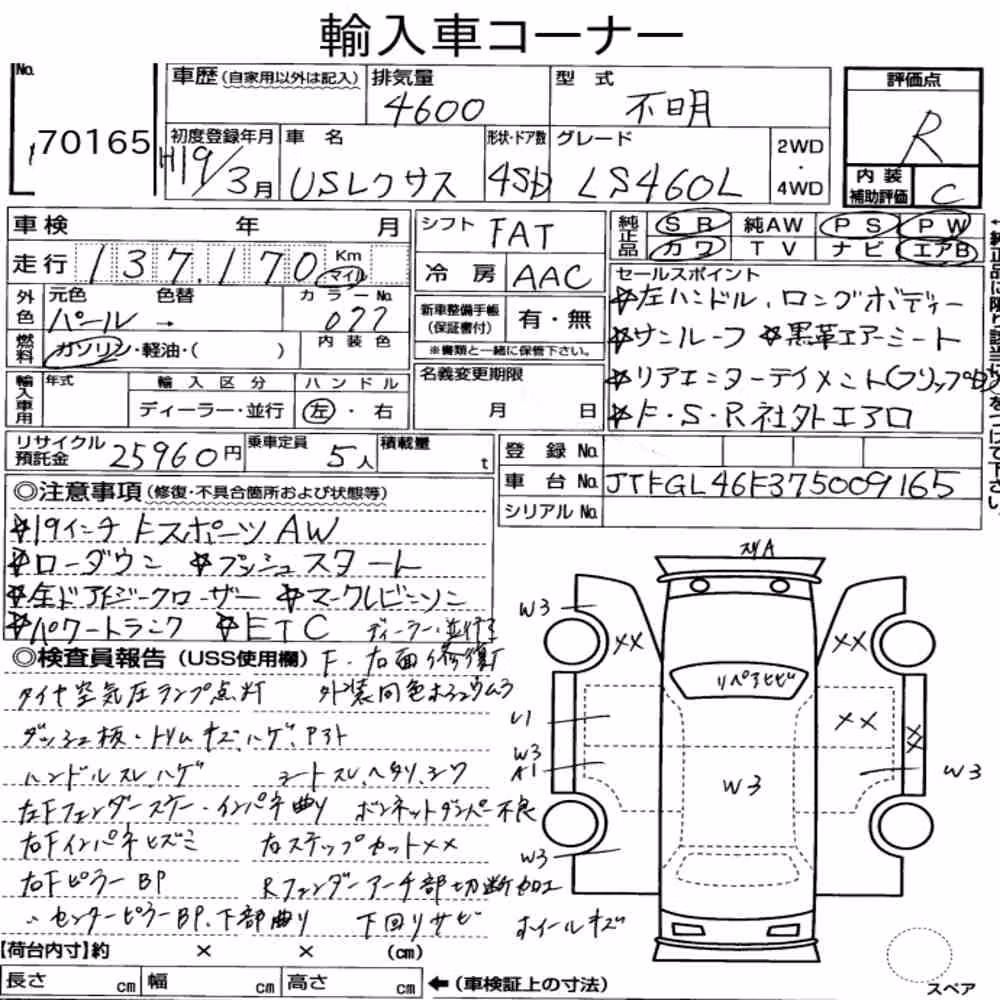 輸入車コーナー
No. 70165
車歴 (自家用以外は記入)
排気量 4600
型式 不明
評価点 R
初度登録年月 H19/3月
車名 USレクサス
形状・ドア数 4SD
グレード LS460L
2WD・4WD
内装補助評価 C
車検 年 月
走行 137,170 Km マイル
シフト FAT
冷房 AAC
純正品 SR 純AW PS PW
カワ TV ナビ エアB
外色 元色 色替 カラーNo.
パール → 077
燃料 ガソリン・軽油・( ) 内装色
新車整備手帳(保証書付) 有・無
※書類と一緒に保管下さい。
セールスポイント
☆左ハンドル、ロングボディー
☆サンルーフ ☆黒革エアーシート
☆リアエンターテイメント(フリップD
☆F・S・R社外エアロ
輸入車用 年式 輸入区分 ハンドル
ディーラー・並行 左・右
名義変更期限
月 日
リサイクル預託金 25960円
乗車定員 5人
積載量 t
登録No.
車台No. JTFGL46F375009165
シリアルNo.
◎注意事項 (修復・不具合箇所および状態等)
☆19インチFスポーツAW
☆ローダウン ☆プッシュスタート
☆全ドアイージークローザー ☆マークレビンソン
☆パワートランク ☆ETC ディーラー・並行
◎検査員報告 (USS使用欄) F・右面修復
タイヤ空気圧ランプ点灯 外装同色ホシュウムラ
ダッシュ板・トリムキズ、ハゲ、アスト
ハンドルスレハゲ シートスレヘタリ、シワ
左Fフェンダースケー・インパネ曲り ボンネットダンパー不良
右Fインパネヒズミ 右ステップカット××
右FピラーBP Rフェンダーアーチ部切断加工
〃センターピラーBP、下部曲り 下回リサビ ホイールキズ
スリA
W3 ×× ××
リペアヒビ
U1 ×× ××
W3
A1 W3 W3
W3
スペア
【荷台内寸】約 × × (cm)
長さ cm 幅 cm 高さ cm ←(車検証上の寸法)